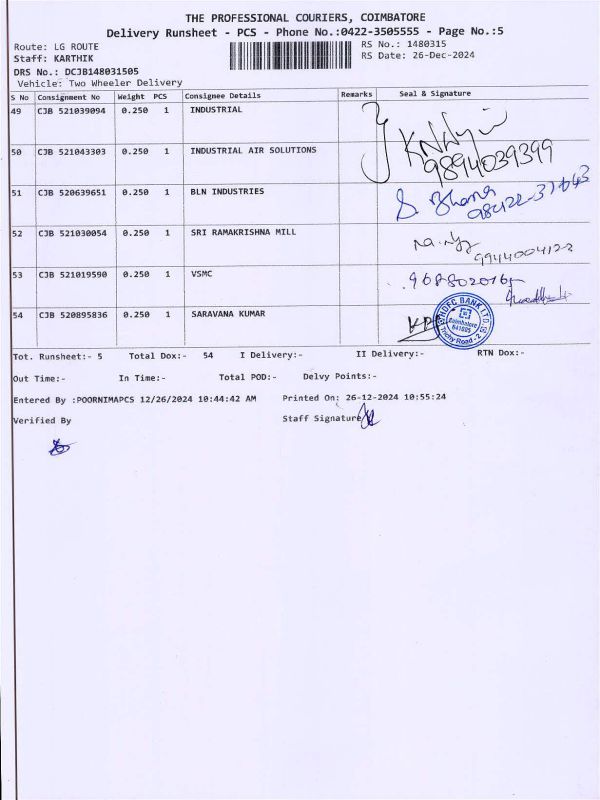 THE PROFESSIONAL COURIERS, COIMBATORE
Delivery Runsheet - PCS - Phone No.:0422-3505555 - Page No.:5
Route: LG ROUTE
RS No.: 1480315
Staff: KARTHIK
RS Date: 26-Dec-2024
DRS No.: DCJB148031505
Vehicle: Two Wheeler Delivery
S No Consignment No Weight PCS Consignee Details Remarks Seal & Signature
49 CJB 521039094 0.250 1 INDUSTRIAL
50 CJB 521043303 0.250 1 INDUSTRIAL AIR SOLUTIONS 9894039399
51 CJB 520639651 0.250 1 BLN INDUSTRIES
52 CJB 521030054 0.250 1 SRI RAMAKRISHNA MILL 9944004122
53 CJB 521019590 0.250 1 VSMC
54 CJB 520895836 0.250 1 SARAVANA KUMAR
HDFC BANK LTD.
Coimbatore
641005
Trichy Road - 2
Tot. Runsheet:- 5 Total Dox:- 54 I Delivery:- II Delivery:- RTN Dox:-
Out Time:- In Time:- Total POD:- Delvy Points:-
Entered By :POORNIMAPCS 12/26/2024 10:44:42 AM Printed On: 26-12-2024 10:55:24
Verified By Staff Signature